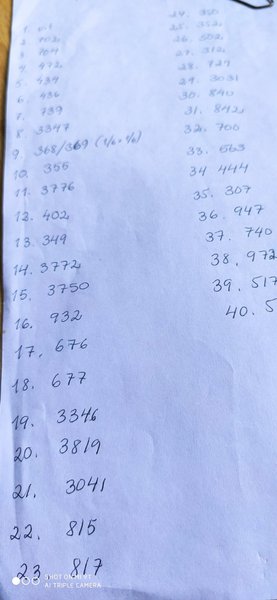 2. 702
3. 704
4. 472
5. 434
6. 436
7. 739
8. 3347
9. 368/369 (1/6 + 1/6)
10. 355
11. 3776
12. 402
13. 349
14. 3772
15. 3750
16. 932
17. 676
18. 677
19. 3346
20. 3819
21. 3041
22. 815
23. 817
24. 350
25. 352
26. 602
27. 312
28. 727
29. 3031
30. 840
31. 842
32. 700
33. 563
34. 444
35. 307
36. 947
37. 740
38. 972
39. 517
40. 5
SHOT ON MI 9T
AI TRIPLE CAMERA